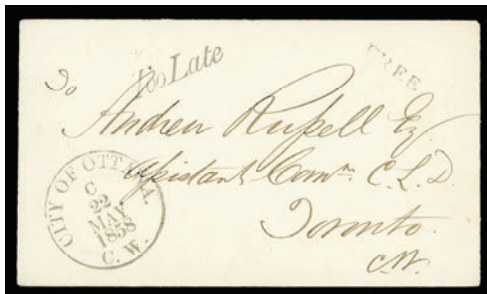 Too Late
FREE
To
Andrew Russell Esq.
Assistant Comr. C.L.D.
Toronto.
C.W.
CITY OF OTTAWA.
C
22
MAY
1858
C.W.